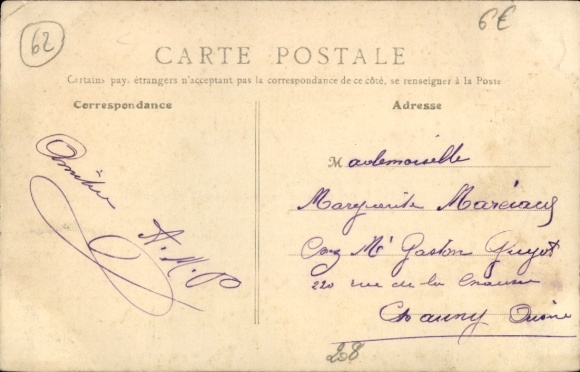 62
6€
CARTE POSTALE
Certains pays étrangers n'acceptant pas la correspondance de ce côté, se renseigner à la Poste
Correspondance
Adresse
Amitiés
A. M. P
Mademoiselle
Marguerite
Chez Mr Gaston Guyot
220 rue de la Chaussée
Chauny Aisne
208